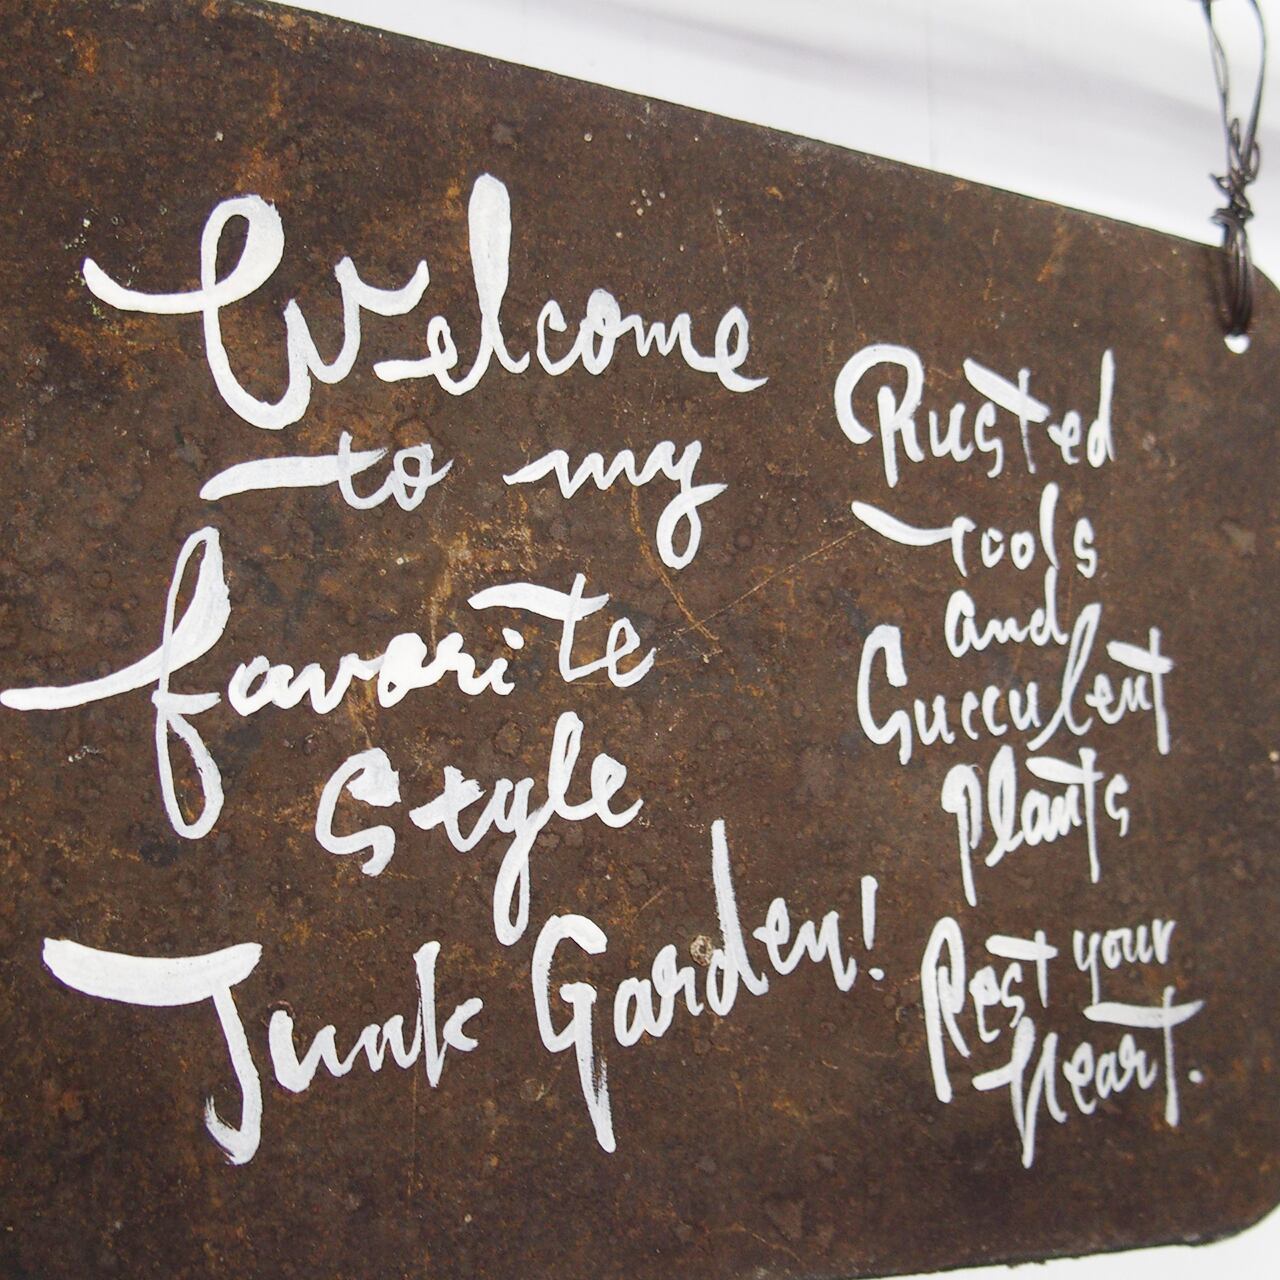 Welcome
to my
favorite
Style
Junk Garden!
Rusted
Tools
and
Succulent
Plants
Rest your
Heart.